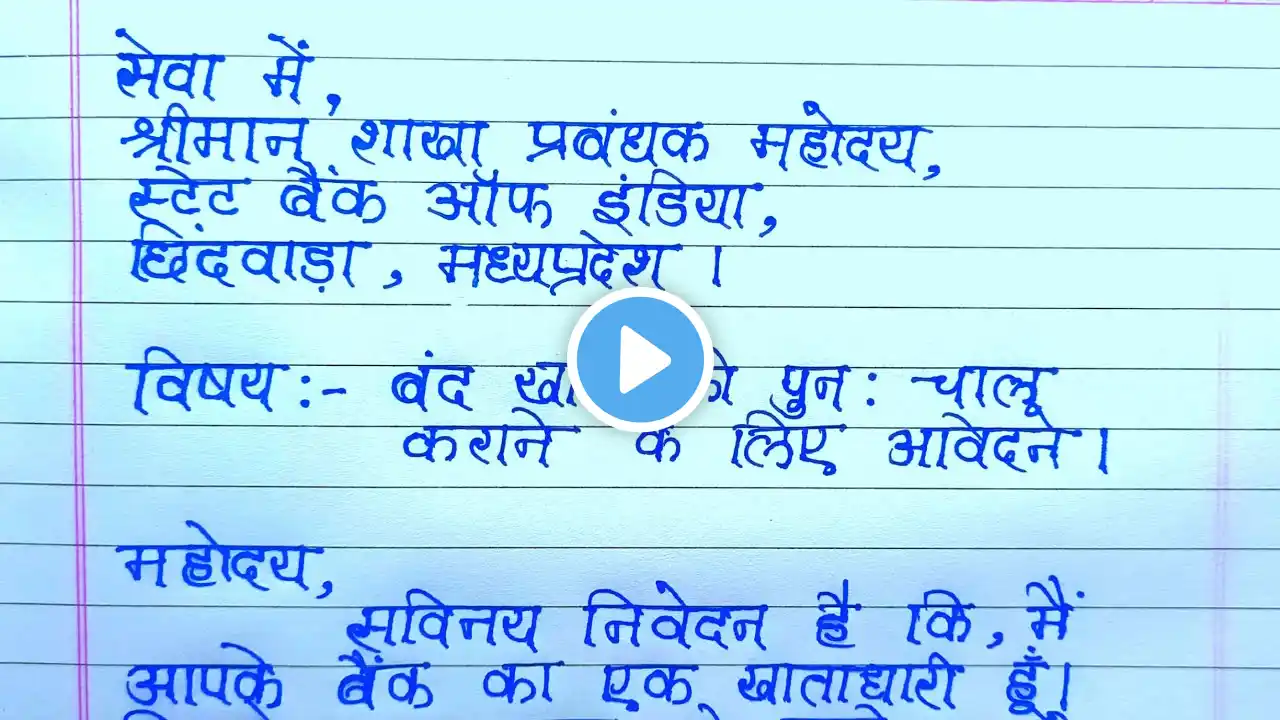 सेवा में,
श्रीमान् शाखा प्रबंधक महोदय,
स्टेट बैंक ऑफ इंडिया,
छिंदवाड़ा, मध्यप्रदेश।
विषय:- बंद पुन: चालू
कराने के लिए आवेदन।
महोदय,
सविनय निवेदन है कि, मैं
आपके बैंक का एक खाताधारी हूँ।